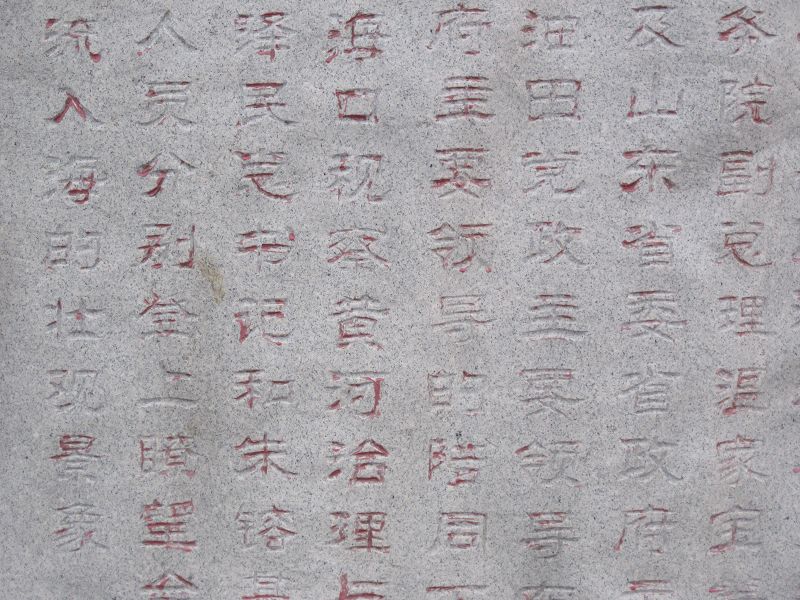 务院副总理温家宝
及山东省委省政府
油田党政主要领导
府主要领导的陪同下
海口视察黄河治理与
泽民总书记和朱镕基
人员分别登上瞭望台
流入海的壮观景象